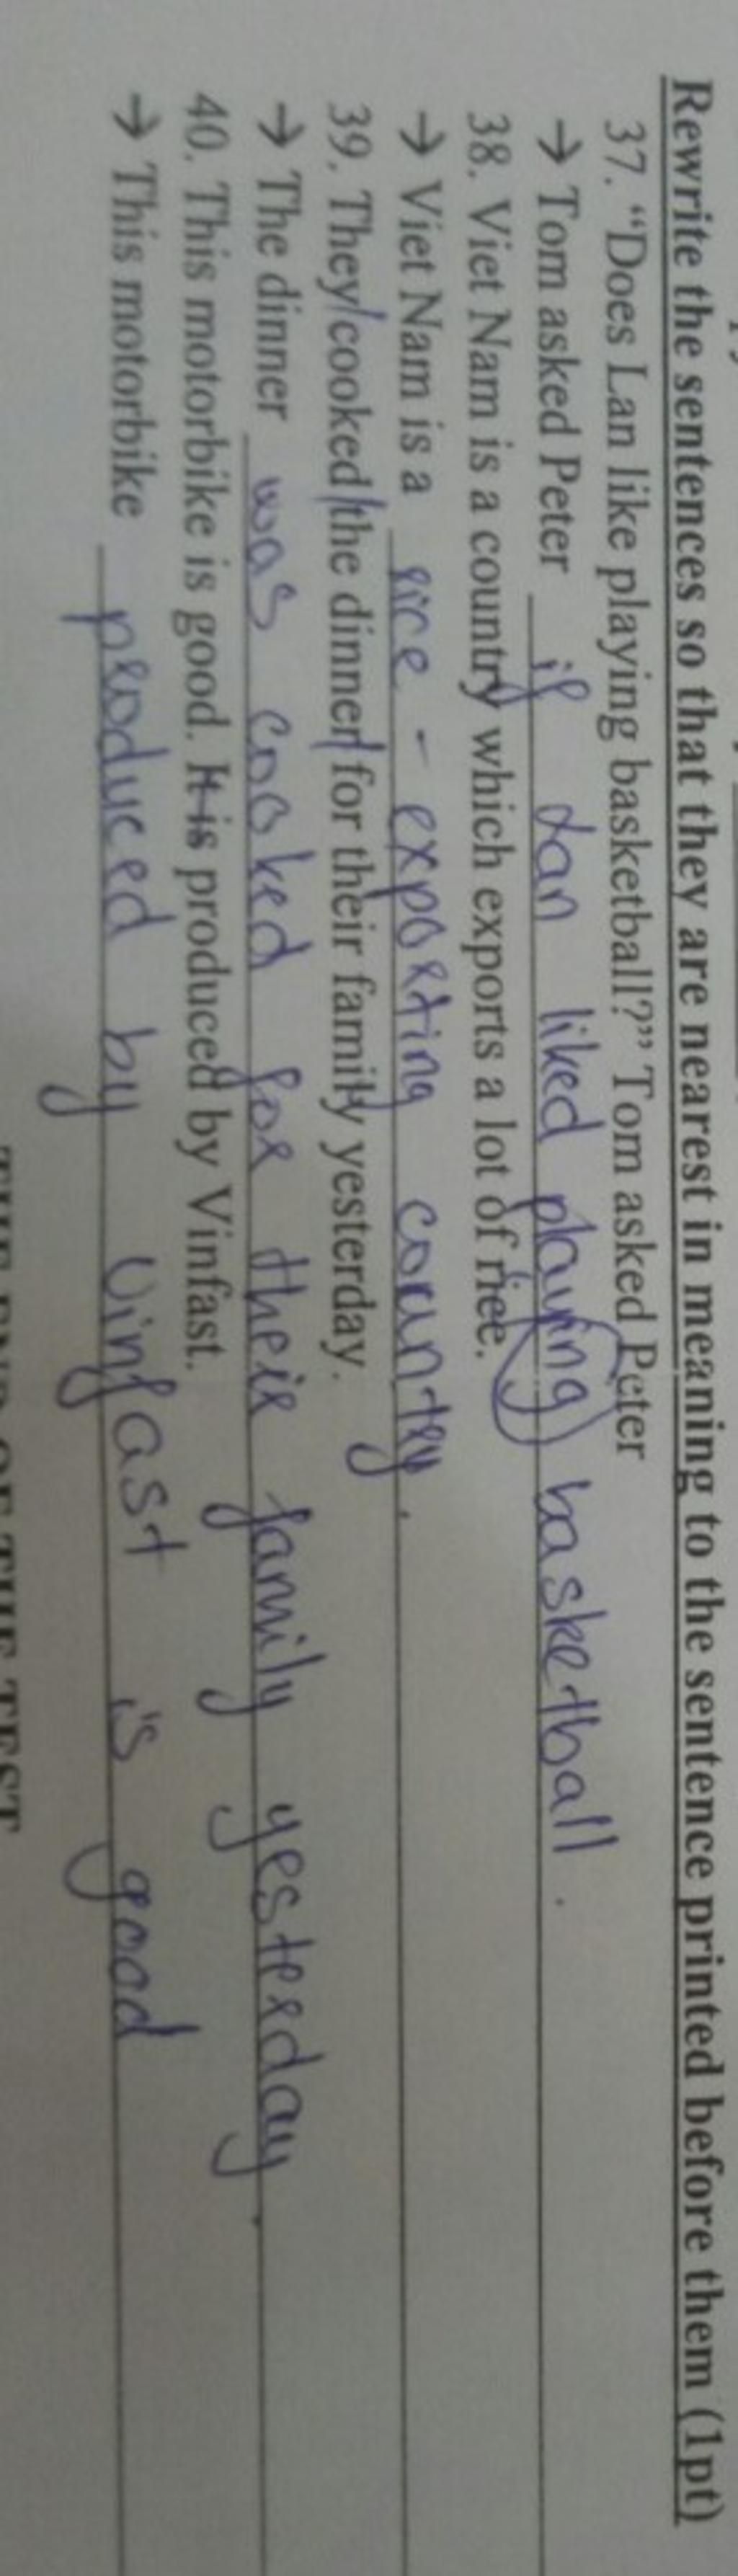 Rewrite the sentences so that they are nearest in meaning to the sentence printed before them (1pt)
37. “Does Lan like playing basketball?” Tom asked Peter
→ Tom asked Peter if Lan liked playing basketball.
38. Viet Nam is a country which exports a lot of rice.
→ Viet Nam is a rice - exporting country.
39. They cooked the dinner for their family yesterday.
→ The dinner was cooked for their family yesterday.
40. This motorbike is good. It is produced by Vinfast.
→ This motorbike produced by Vinfast is good
THE END OF THE TEST